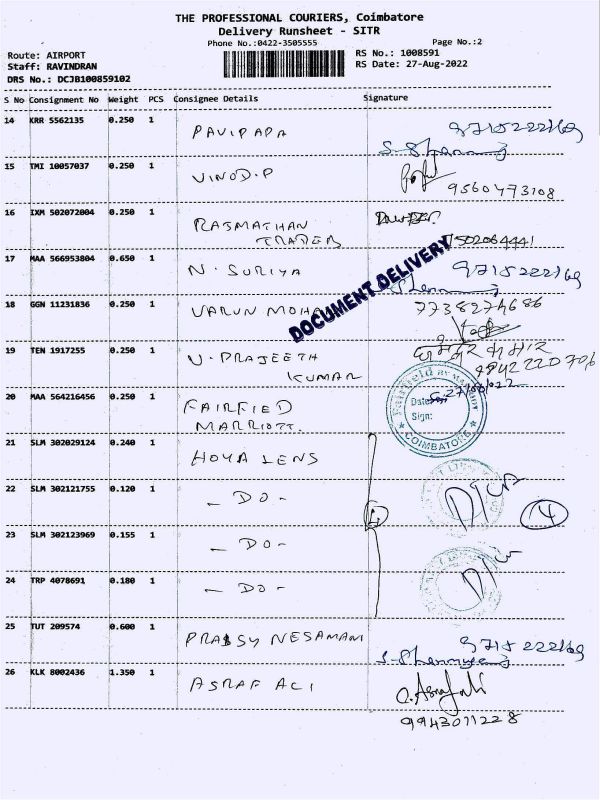 THE PROFESSIONAL COURIERS, Coimbatore
Delivery Runsheet - SITR
Phone No.:0422-3505555 Page No.:2
Route: AIRPORT RS No.: 1008591
Staff: RAVINDRAN RS Date: 27-Aug-2022
DRS No.: DCJB100859102
S No Consignment No Weight PCS Consignee Details Signature
14 KRR 5562135 0.250 1 PAVIPAPA 9715222169
15 TMI 10057037 0.250 1 VINOD.P 9560473108
16 IXM 502072004 0.250 1 RAJMATHAN
TRADER 7502064441
17 MAA 566953804 0.650 1 N. SURIYA 9715222169
DOCUMENT DELIVERY
18 GGN 11231836 0.250 1 VARUN MOHA 7738274686
19 TEN 1917255 0.250 1 V. PRAJEETH
KUMAR
20 MAA 564216456 0.250 1 FAIRFIED
MARRIOTT.
Fairfield BY MARRIOTT
Date:
Sign:
COIMBATORE
21 SLM 302029124 0.240 1 HOYA LENS
22 SLM 302121755 0.120 1 - DO -
23 SLM 302123969 0.155 1 - DO -
24 TRP 4078691 0.180 1 - DO -
25 TUT 209574 0.600 1 NESAMANI 9715222169
26 KLK 8002436 1.350 1 ASRAF ALI
9943011228